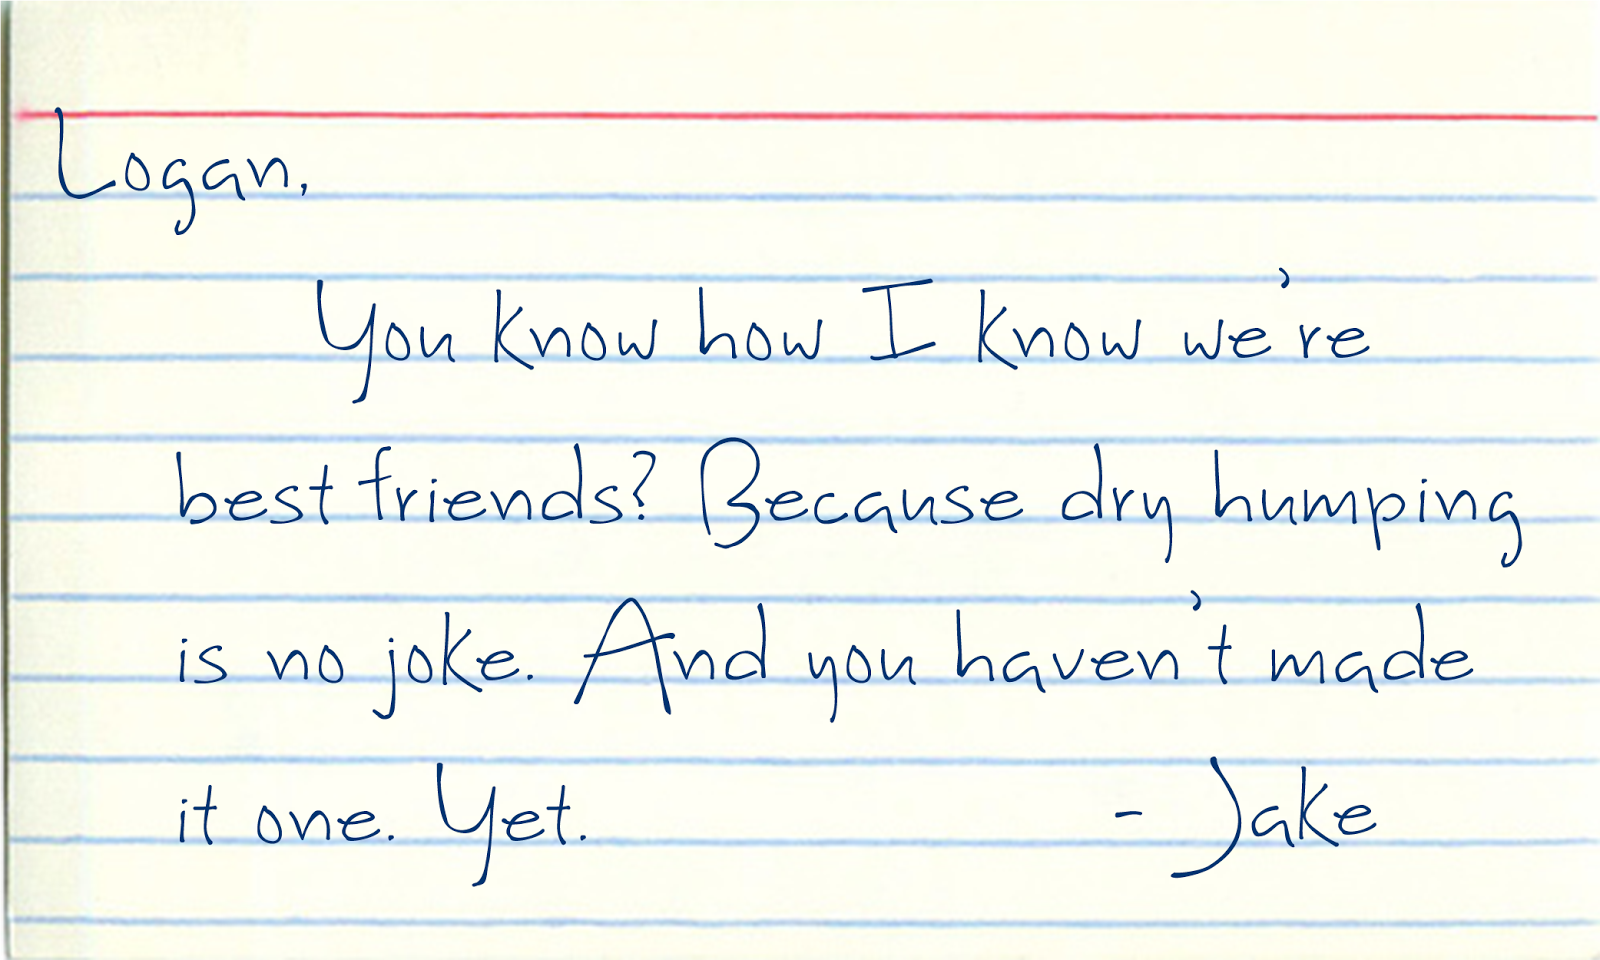 Logan,
You know how I know we're
best friends? Because dry humping
is no joke. And you haven't made
it one. Yet. - Jake